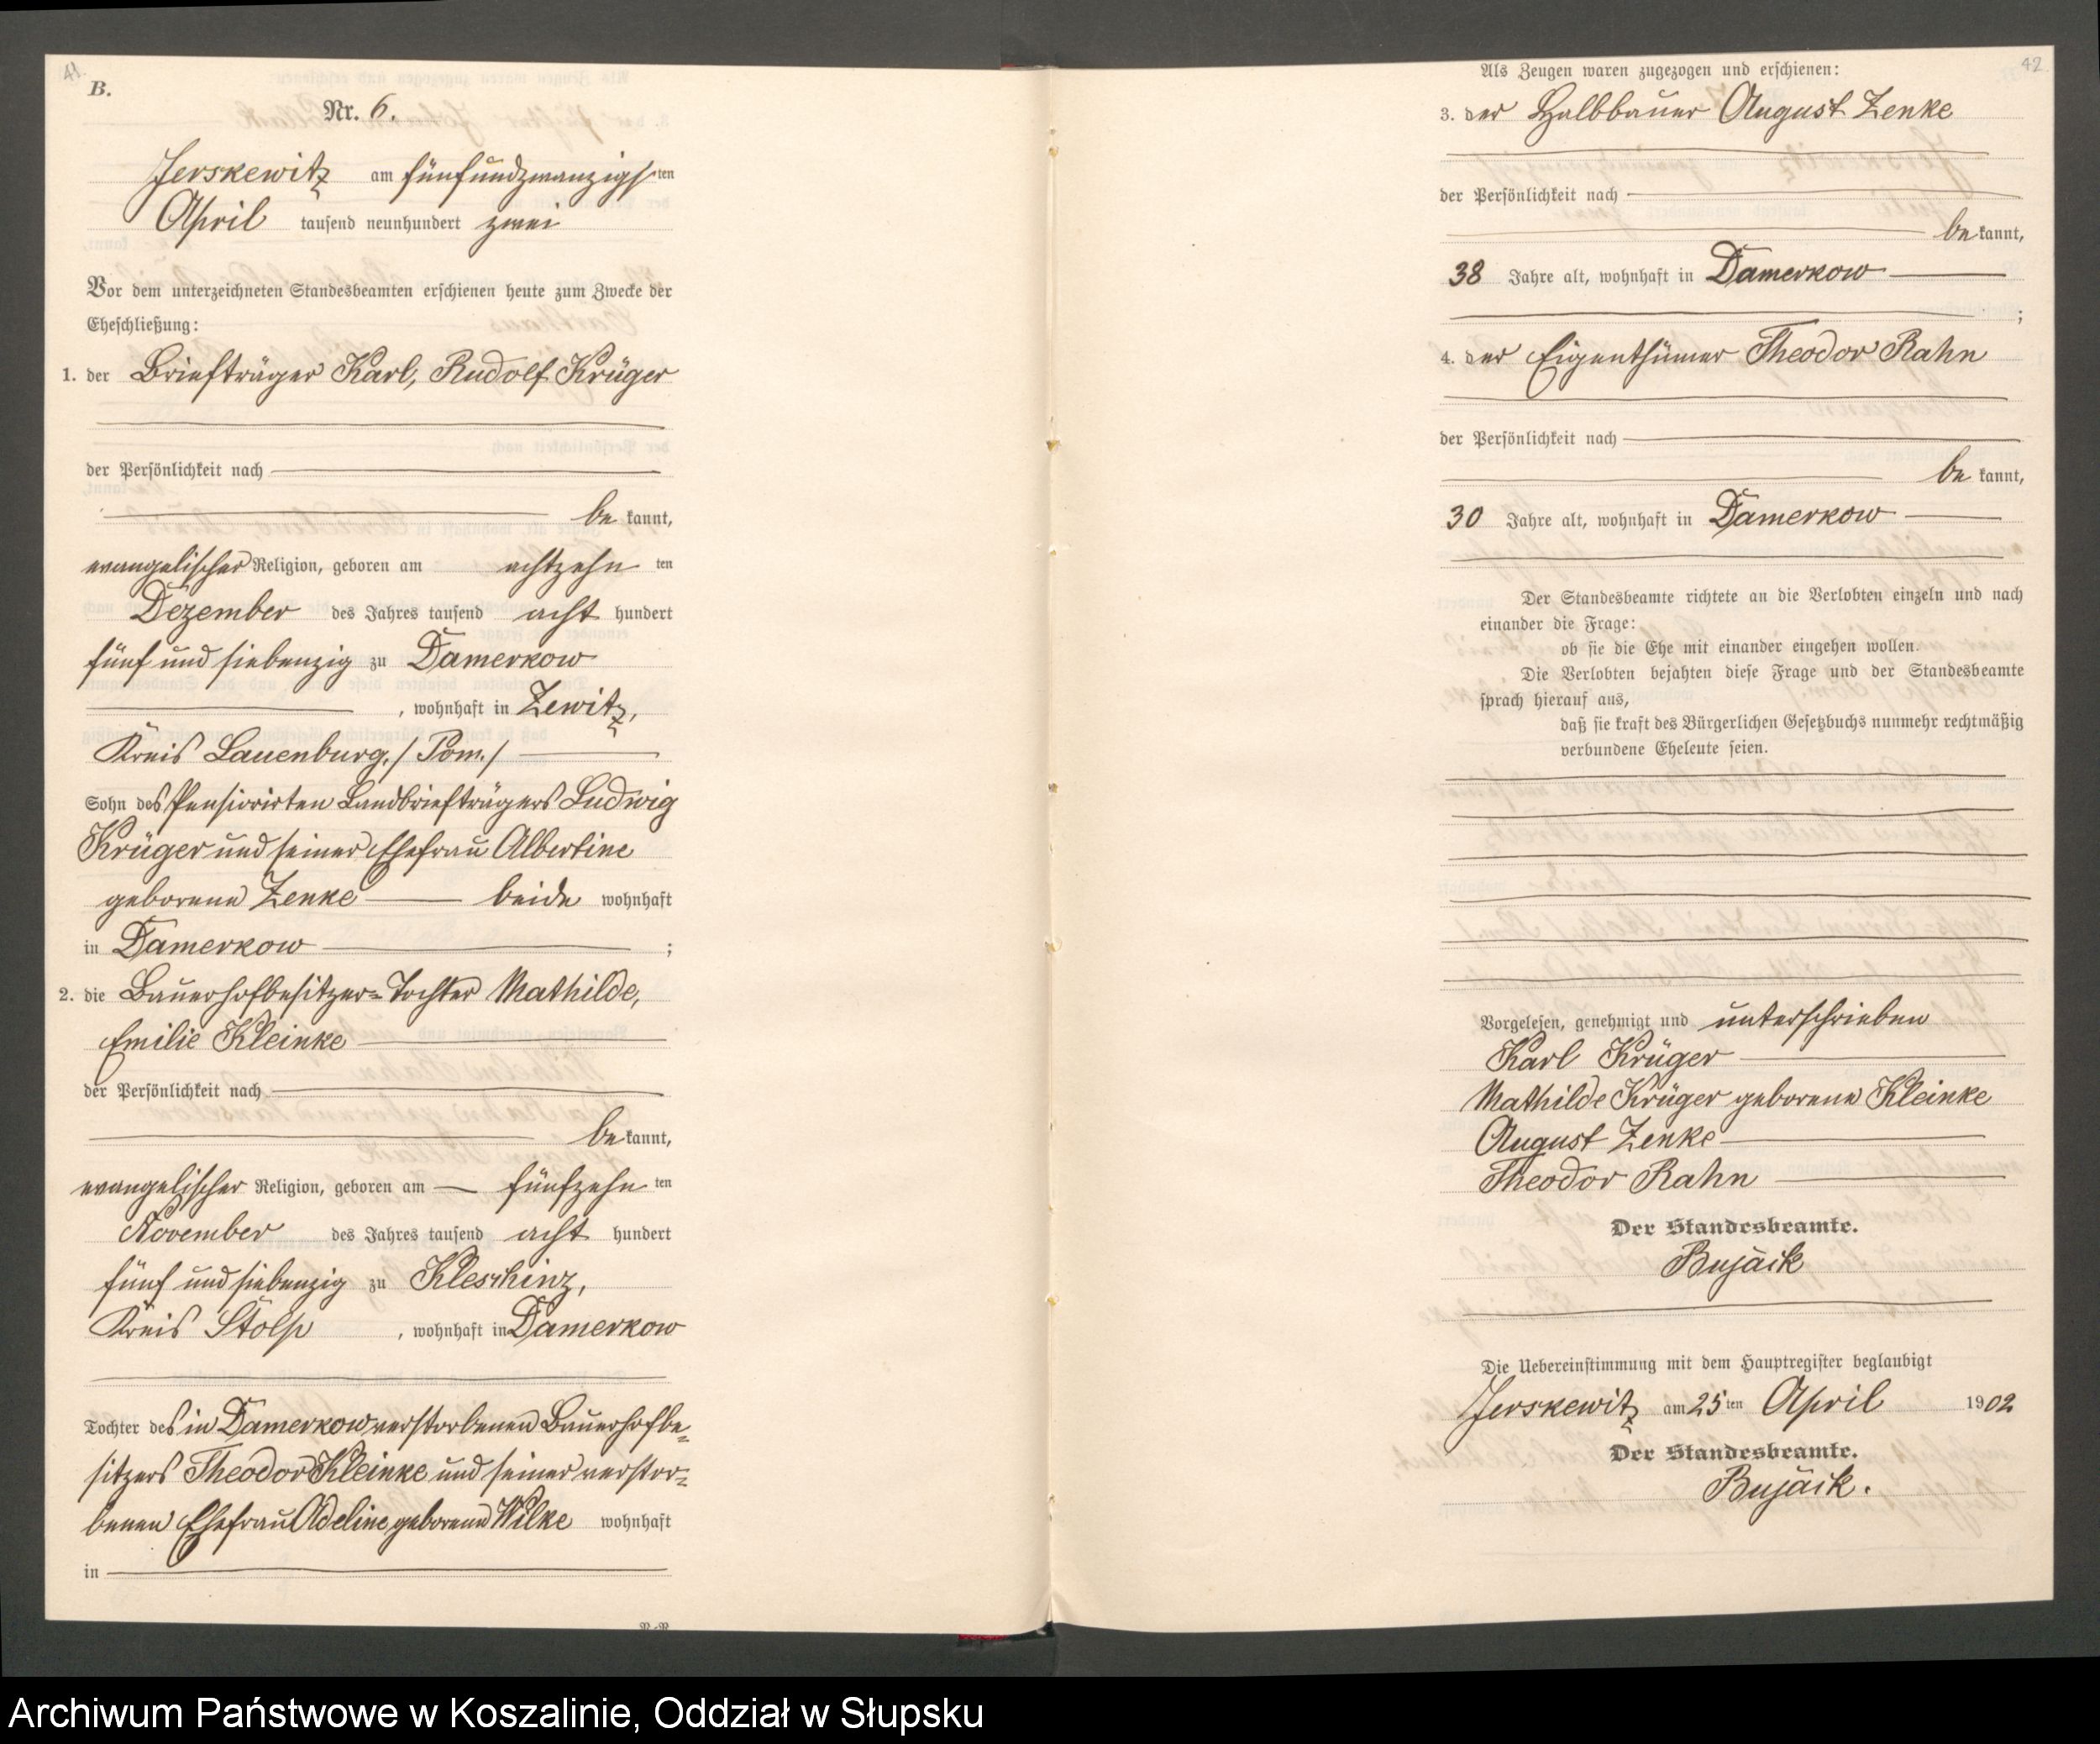 41.
B.
Nr. 6.
Jerskewitz am fünfundzwanzigsten
April tausend neunhundert zwei
Vor dem unterzeichneten Standesbeamten erschienen heute zum Zwecke der
Eheschließung:
1. der Briefträger Karl, Rudolf Krüger
der Persönlichkeit nach
bekannt,
evangelischer Religion, geboren am achtzehnten
Dezember des Jahres tausend acht hundert
fünf und siebenzig zu Damerkow
, wohnhaft in Zewitz,
Kreis Lauenburg./Pom./
Sohn des Pensionirten Landbriefträgers Ludwig
Krüger und seiner Ehefrau Albertine
geborene Zenke beide wohnhaft
in Damerkow ;
2. die Bauerhofbesitzer=Tochter Mathilde,
Emilie Kleinke
der Persönlichkeit nach
bekannt,
evangelischer Religion, geboren am fünfzehnten
November des Jahres tausend acht hundert
fünf und siebenzig zu Kleschinz,
Kreis Stolp , wohnhaft in Damerkow
Tochter des in Damerkow verstorbenen Bauerhofbe=
sitzers Theodor Kleinke und seiner verstor=
benen Ehefrau Adeline geborene Wilke wohnhaft
in
42
Als Zeugen waren zugezogen und erschienen:
3. der Halbbauer August Zenke
der Persönlichkeit nach
bekannt,
38 Jahre alt, wohnhaft in Damerkow
;
4. der Eigenthümer Theodor Rahn
der Persönlichkeit nach
bekannt,
30 Jahre alt, wohnhaft in Damerkow
Der Standesbeamte richtete an die Verlobten einzeln und nach
einander die Frage:
ob sie die Ehe mit einander eingehen wollen.
Die Verlobten bejahten diese Frage und der Standesbeamte
sprach hierauf aus,
daß sie kraft des Bürgerlichen Gesetzbuchs nunmehr rechtmäßig
verbundene Eheleute seien.
Vorgelesen, genehmigt und unterschrieben
Karl Krüger
Mathilde Krüger geborene Kleinke
August Zenke
Theodor Rahn
Der Standesbeamte.
Bujack
Die Uebereinstimmung mit dem Hauptregister beglaubigt
Jerskewitz am 25ten April 1902
Der Standesbeamte.
Bujack.
Archiwum Państwowe w Koszalinie, Oddział w Słupsku